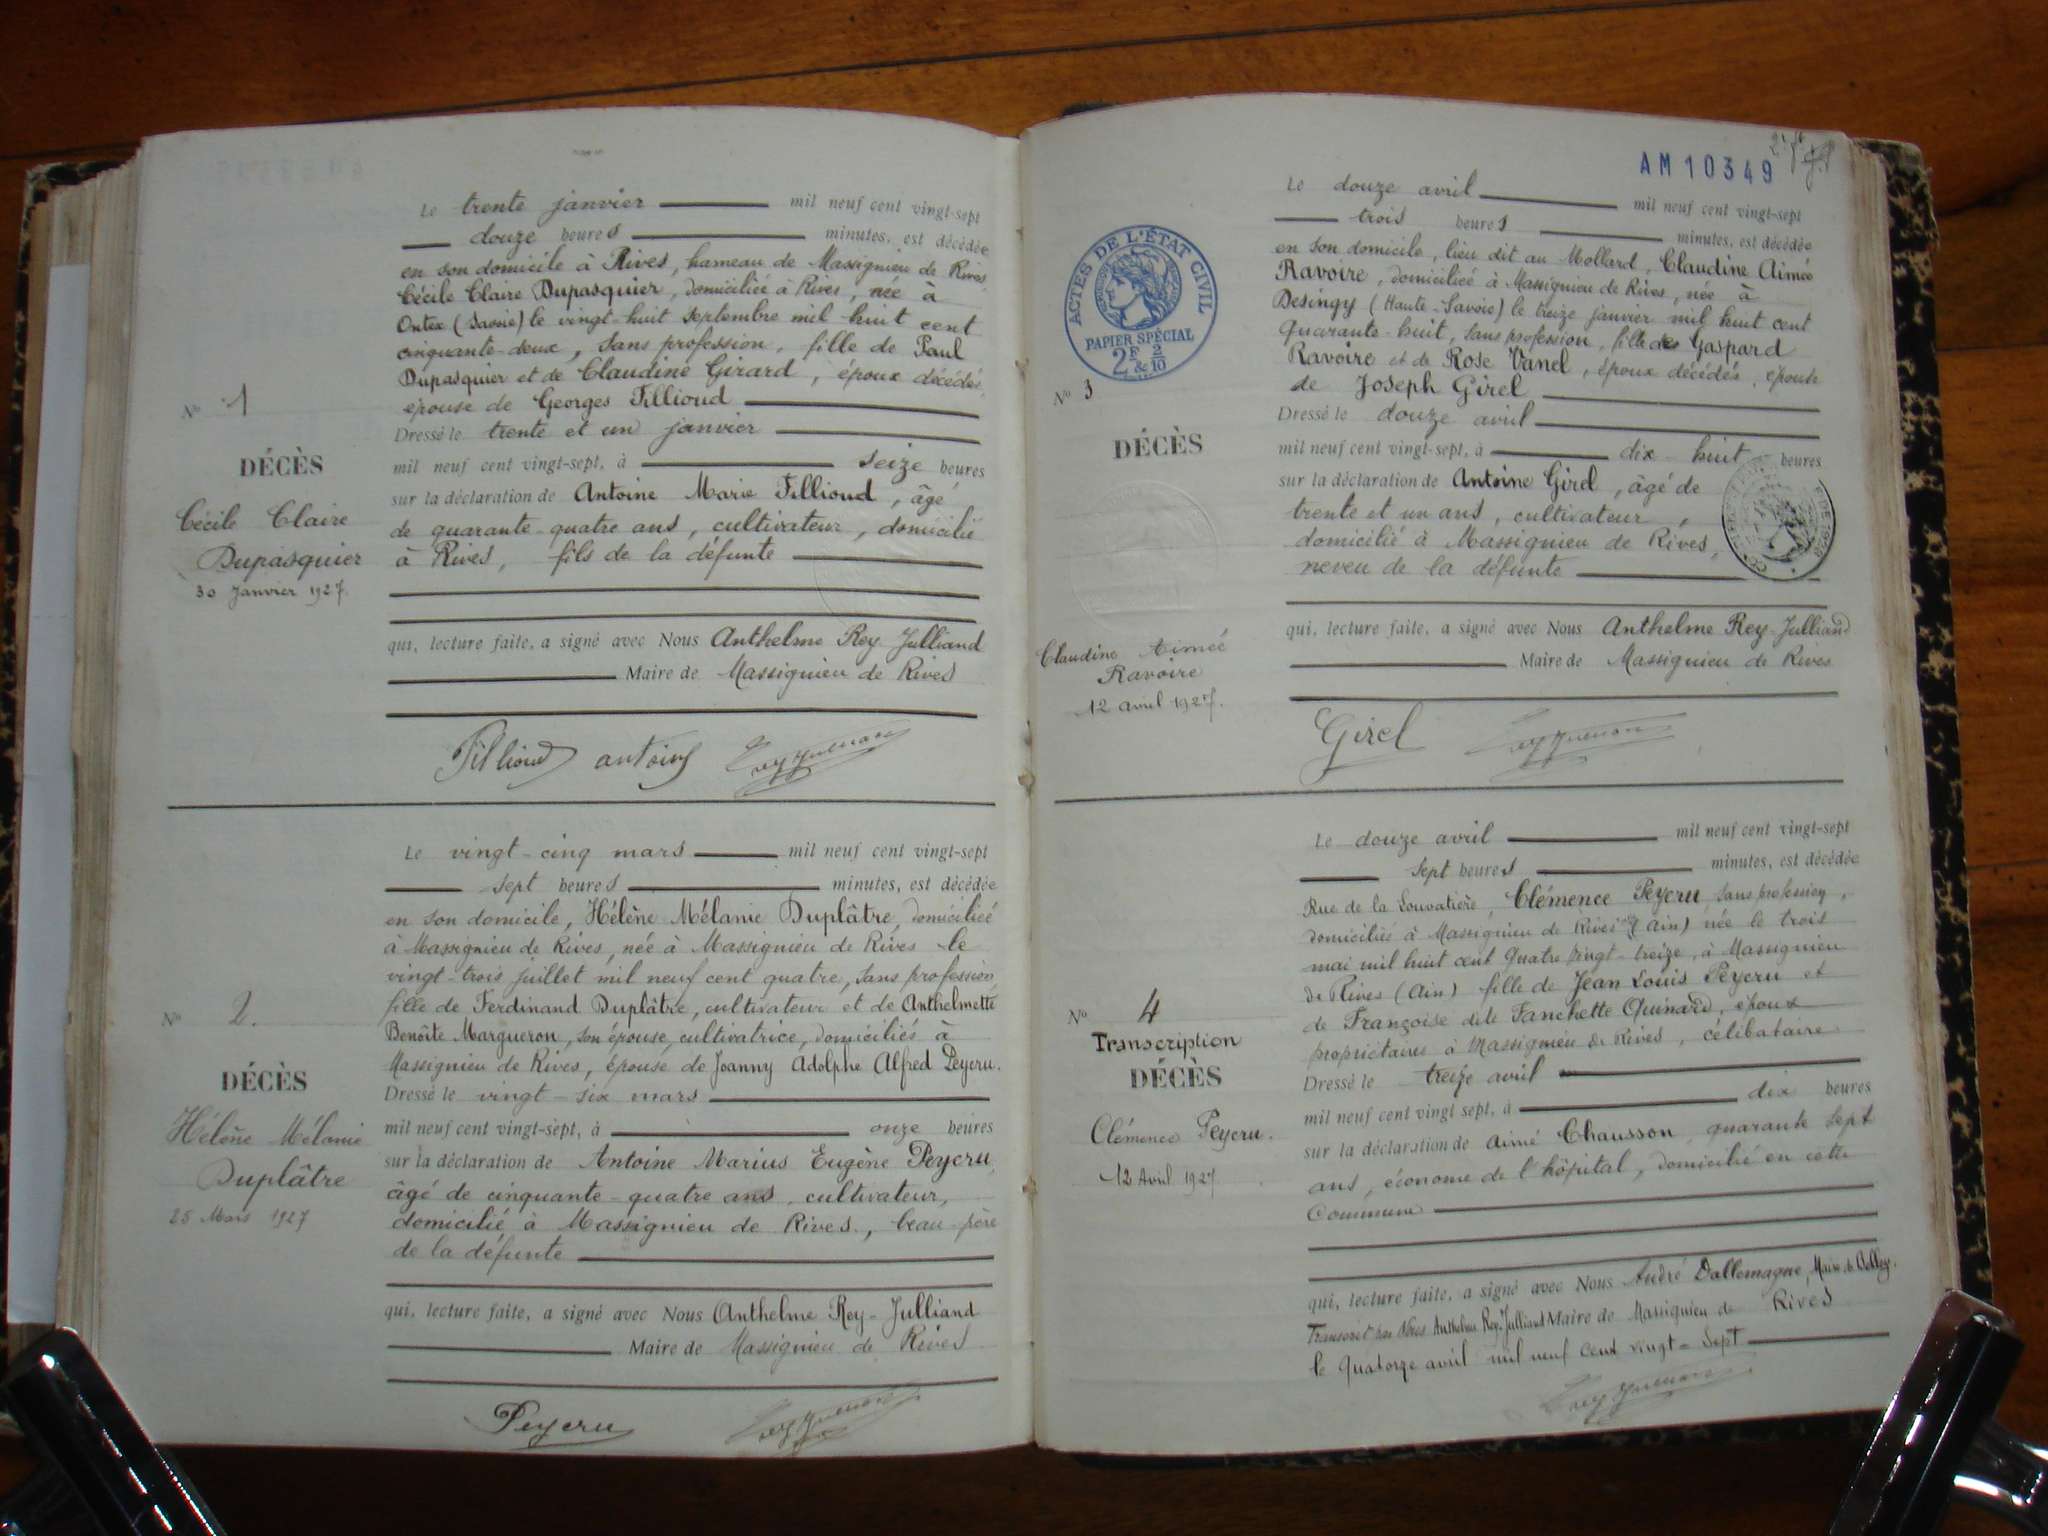 Le trente janvier mil neuf cent vingt-sept
douze heures minutes, est décédée
en son domicile à Rives, hameau de Massignieu de Rives
Cécile Claire Dupasquier, domiciliée à Rives, née à
Ontex (Savoie) le vingt-huit septembre mil huit cent
cinquante-deux, sans profession, fille de Paul
Dupasquier et de Claudine Girard, époux décédés,
épouse de Georges Fillioud
Dressé le trente et un janvier
mil neuf cent vingt-sept, à seize heures
sur la déclaration de Antoine Marie Fillioud, âgé
de quarante-quatre ans, cultivateur, domicilié
à Rives, fils de la défunte
qui, lecture faite, a signé avec Nous Anthelme Rey-Julliand
Maire de Massignieu de Rives
Fillioud antoine
No 1
DÉCÈS
Cécile Claire
Dupasquier
30 Janvier 1927.
Le vingt-cinq mars mil neuf cent vingt-sept
sept heures minutes, est décédée
en son domicile, Hélène Mélanie Duplâtre, domiciliée
à Massignieu de Rives, née à Massignieu de Rives le
vingt-trois juillet mil neuf cent quatre, sans profession
fille de Ferdinand Duplâtre, cultivateur et de Anthelmette
Benoîte Margueron, son épouse, cultivatrice, domiciliés à
Massignieu de Rives, épouse de Joanny Adolphe Alfred Peycru.
Dressé le vingt-six mars
mil neuf cent vingt-sept, à onze heures
sur la déclaration de Antoine Marius Eugène Peycru
âgé de cinquante-quatre ans, cultivateur,
domicilié à Massignieu de Rives, beau-père
de la défunte
qui, lecture faite, a signé avec Nous Anthelme Rey-Julliand
Maire de Massignieu de Rives
Peycru
No 2.
DÉCÈS
Hélène Mélanie
Duplâtre
25 Mars 1927
AM10349
Le douze avril mil neuf cent vingt-sept
trois heures minutes, est décédée
en son domicile, lieu dit au Mollard, Claudine Aimée
Ravoire, domiciliée à Massignieu de Rives, née à
Desingy (Haute-Savoie) le treize janvier mil huit cent
quarante-huit, sans profession, fille de Gaspard
Ravoire et de Rose Vanel, époux décédés, épouse
de Joseph Girel
Dressé le douze avril
mil neuf cent vingt-sept, à dix-huit heures
sur la déclaration de Antoine Girel, âgé de
trente et un ans, cultivateur,
domicilié à Massignieu de Rives,
neveu de la défunte
qui, lecture faite, a signé avec Nous Anthelme Rey-Julliand
Maire de Massignieu de Rives
Girel
ACTES DE L'ÉTAT CIVIL
PAPIER SPÉCIAL
2F & 2/10
No 3
DÉCÈS
Claudine Aimée
Ravoire
12 avril 1927.
Le douze avril mil neuf cent vingt-sept
sept heures minutes, est décédée
Rue de la Louvatière, Clémence Peycru, sans profession,
domiciliée à Massignieu de Rives (Ain) née le trois
mai mil huit cent quatre vingt-treize, à Massignieu
de Rives (Ain) fille de Jean Louis Peycru et
de Françoise dite Fanchette Quinard, époux
propriétaires à Massignieu de Rives, célibataire
Dressé le treize avril
mil neuf cent vingt sept, à dix heures
sur la déclaration de Aimé Chausson, quarante sept
ans, économe de l'hôpital, domicilié en cette
Commune
qui, lecture faite, a signé avec Nous André Dallemagne, Maire de Belley.
Transcrit par Nous Anthelme Rey-Julliand Maire de Massignieu de Rives
le quatorze avril mil neuf cent vingt-sept
No 4
Transcription
DÉCÈS
Clémence Peycru.
12 Avril 1927.